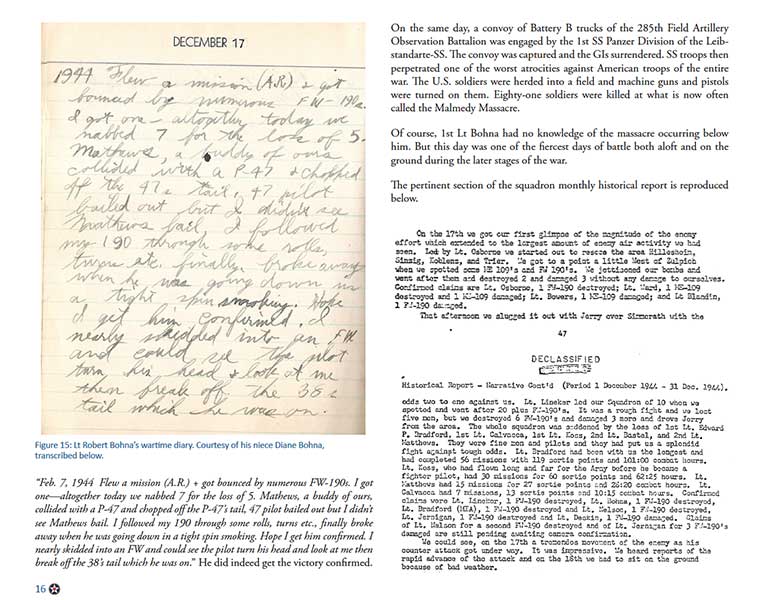 DECEMBER 17
1944 Flew a mission (A.R.) + got
bounced by numerous FW-190s.
I got one - altogether today we
nabbed 7 for the loss of 5.
Mathews, a buddy of ours
collided with a P-47 + chopped
off the 47s tail, 47 pilot
bailed out but I didn't see
Mathews bail. I followed
my 190 through some rolls,
turns etc. finally broke away
when he was going down in
a tight spin smoking. Hope
I get him confirmed. I
nearly skidded into an FW
and could see the pilot
turn his head + look at me
then break off the 38's
tail which he was on.
Figure 15: Lt Robert Bohna's wartime diary. Courtesy of his niece Diane Bohna,
transcribed below.
"Feb. 7, 1944 Flew a mission (A.R.) + got bounced by numerous FW-190s. I got
one—altogether today we nabbed 7 for the loss of 5. Mathews, a buddy of ours,
collided with a P-47 and chopped off the P-47's tail, 47 pilot bailed out but I didn't
see Mathews bail. I followed my 190 through some rolls, turns etc., finally broke
away when he was going down in a tight spin smoking. Hope I get him confirmed. I
nearly skidded into an FW and could see the pilot turn his head and look at me then
break off the 38's tail which he was on." He did indeed get the victory confirmed.
16
On the same day, a convoy of Battery B trucks of the 285th Field Artillery
Observation Battalion was engaged by the 1st SS Panzer Division of the Leib-
standarte-SS. The convoy was captured and the GIs surrendered. SS troops then
perpetrated one of the worst atrocities against American troops of the entire
war. The U.S. soldiers were herded into a field and machine guns and pistols
were turned on them. Eighty-one soldiers were killed at what is now often
called the Malmedy Massacre.
Of course, 1st Lt Bohna had no knowledge of the massacre occurring below
him. But this day was one of the fiercest days of battle both aloft and on the
ground during the later stages of the war.
The pertinent section of the squadron monthly historical report is reproduced
below.
On the 17th we got our first glimpse of the magnitude of the enemy
effort which extended to the largest amount of enemy air activity we had
seen. Led by Lt. Osborne we started out to rescue the area Hillesheim,
Sinzig, Koblenz, and Trier. We got to a point a little West of Zulpich
when we spotted some ME 109's and FW 190's. We jettisoned our bombs and
went after them and destroyed 2 and damaged 3 without any damage to ourselves.
Confirmed claims are Lt. Osborne, 1 FW-190 destroyed; Lt. Ward, 1 ME-109
destroyed and 1 ME-109 damaged; Lt. Bowers, 1 ME-109 damaged; and Lt Blandin,
1 FW-190 damaged.
That afternoon we slugged it out with Jerry over Simmerath with the
47
DECLASSIFIED
Historical Report - Narrative Cont'd (Period 1 December 1944 - 31 Dec. 1944).
odds two to one against us. Lt. Lineker led our Squadron of 10 when we
spotted and went after 20 plus FW-190's. It was a rough fight and we lost
five men, but we destroyed 6 FW-190's and damaged 3 more and drove Jerry
from the area. The whole squadron was saddened by the loss of 1st Lt. Edward
P. Bradford, 1st Lt. Calvocea, 1st Lt. Koss, 2nd Lt. Dastel, and 2nd Lt.
Matthews. They were fine men and pilots and they had put us a splendid
fight against tough odds. Lt. Bradford had been with us the longest and
had completed 56 missions with 119 sortie points and 101:00 combat hours.
Lt. Koss, who had flown long and far for the Army before he became a
fighter pilot, had 30 missions for 60 sortie points and 62:25 hours. Lt.
Matthews had 15 missions for 27 sortie points and 26:20 combat hours. Lt.
Calvocea had 7 missions, 13 sortie points and 10:15 combat hours. Confirmed
claims were Lt. Lineker, 1 FW-190 destroyed, Lt. Bohna, 1 FW-190 destroyed,
Lt. Bradford (MIA), 1 FW-190 destroyed and Lt. Nelson, 1 FW-190 destroyed,
Lt. Jernigan, 1 FW-190 destroyed and Lt. Deakin, 1 FW-190 damaged. Claims
of Lt. Nelson for a second FW-190 destroyed and of Lt. Jernigan for 3 FW-190's
damaged are still pending awaiting camera confirmation.
We could see, on the 17th a tremendous movement of the enemy as his
counter attack got under way. It was impressive. We heard reports of the
rapid advance of the attack and on the 18th we had to sit on the ground
because of bad weather.